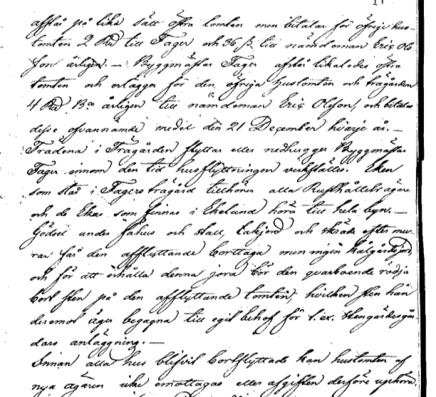 afstå på lika sätt östra tomten men betalar för öfriga hus-
tomten 2 Rd till Fager och 36 sk till nämdeman Eric Ol-
son årligen. — Byggmästar Fager afstår likaledes östra
tomten och erlägger för den öfriga hustomten och trägården
4 Rd B:co årligen till nämdeman Eric Olson, och betalas
desse ofvannämde medel den 21 December hvarje år. —
Trädena i Trägården flyttar eller nedhugger Byggmästar
Fager innom den tid husflyttningen verkställes. Eken
som står i Fagers trägård tillhörer alla Rusthållets ägare
och de Ekar som finnas i Ekelund höra till hela byn. —
Gödsel under fähus och stall, kalkjord och efter mu-
rar får den afflyttande borttaga men ingen kålgårdsjord,
och för att erhålla denna jord bör den quarboende rödja
bort sten på den afflyttande tomten, hvilken sten han
deremot äger begagna till egit behof för t.ex. stengärdesgår-
dars anläggning. —
Innan alla hus blifvit bortflyttade kan hustomten af
nya ägaren icke emottagas eller afgiften derföre upphöra